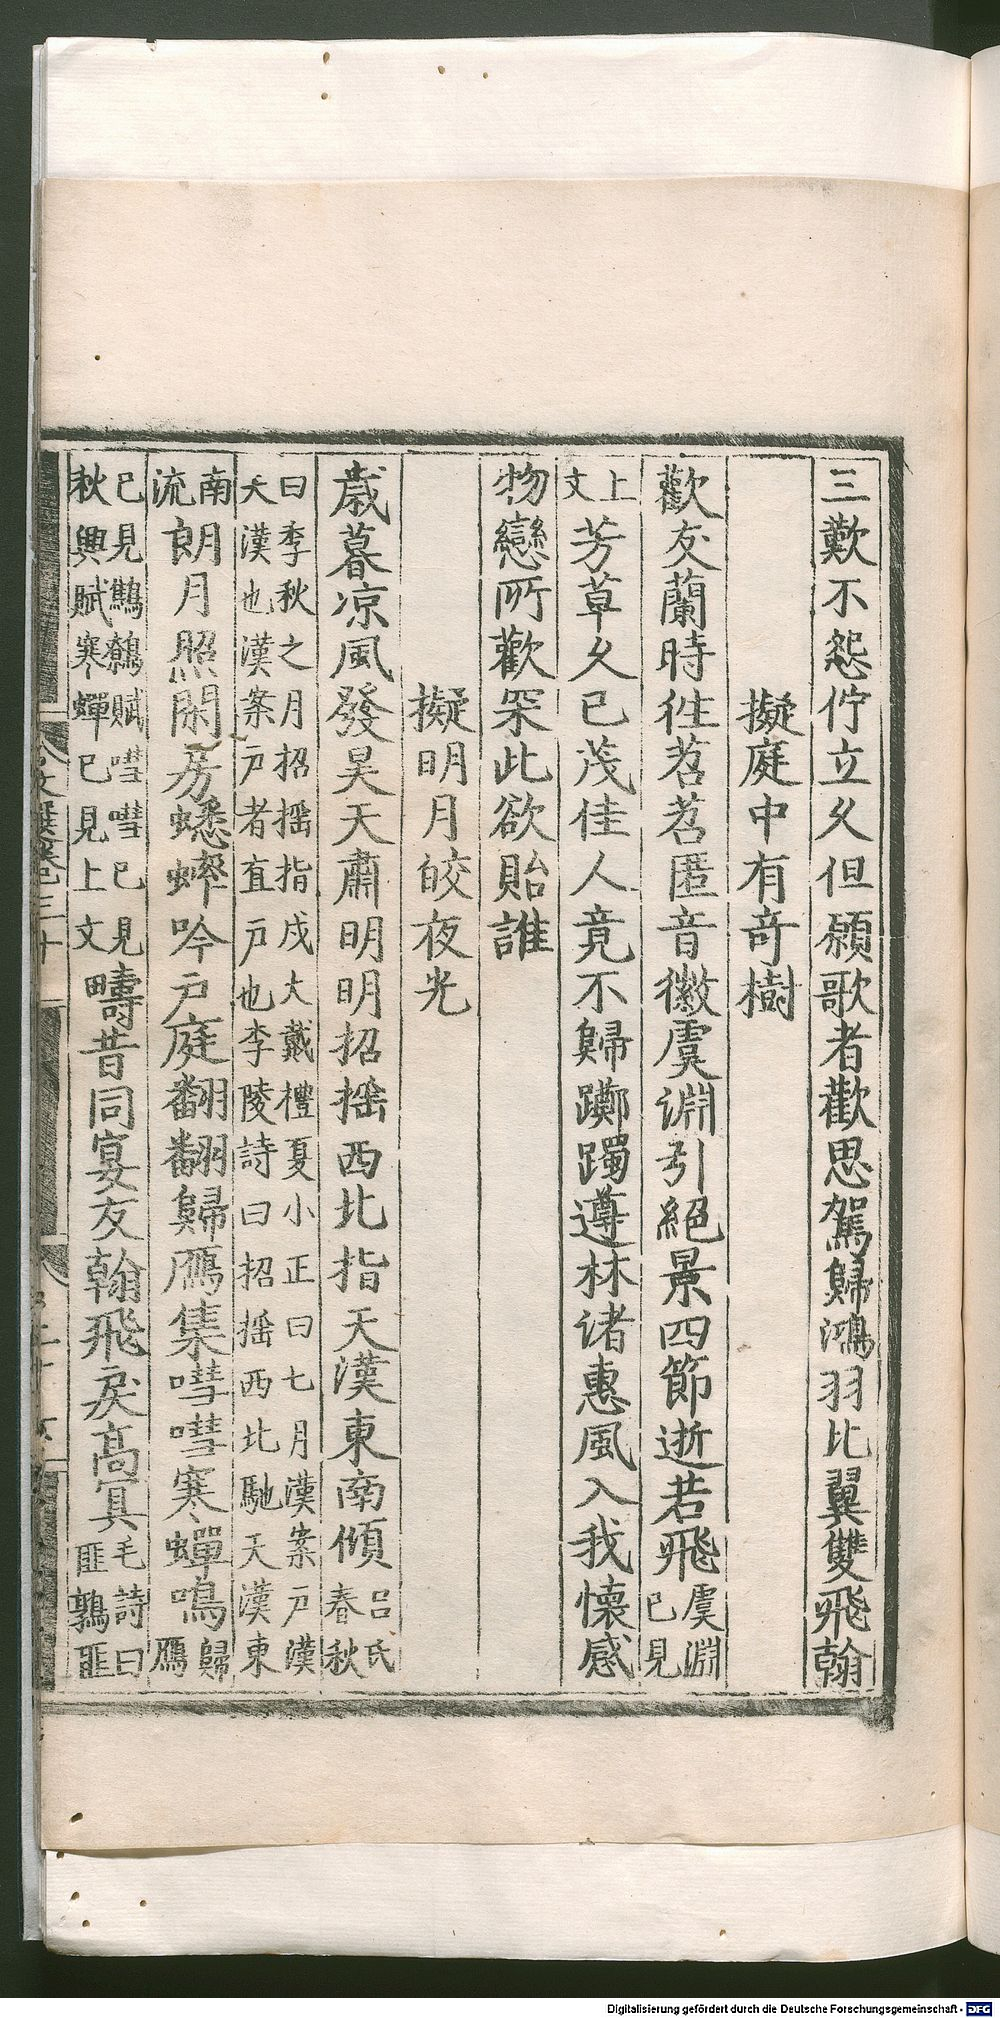 三歎不怨佇立久但願歌者歡思駕歸鴻羽比翼雙飛翰
擬庭中有奇樹
歡友蘭時往苕苕匿音徽虞淵引絕景四節逝若飛虞淵已見
上文芳草久已茂佳人竟不歸躑躅遵林渚惠風入我懷感
物戀所歡采此欲貽誰
擬明月皎夜光
歲暮凉風發昊天肅明明招搖西北指天漢東南傾呂氏春秋
曰季秋之月招搖指戌大戴禮夏小正曰七月漢案戶漢
天漢也漢案戶者直戶也李陵詩曰招搖西北馳天漢東
南流朗月照閑房蟋蟀吟戶庭翻翻歸鴈集嘒嘒寒蟬鳴歸鴈
已見鷦鷯賦嘒嘒已見
秋興賦寒蟬已見上文疇昔同宴友翰飛戾高冥毛詩曰匪鶉匪
文選卷三十
Digitalisierung gefördert durch die Deutsche Forschungsgemeinschaft - DFG